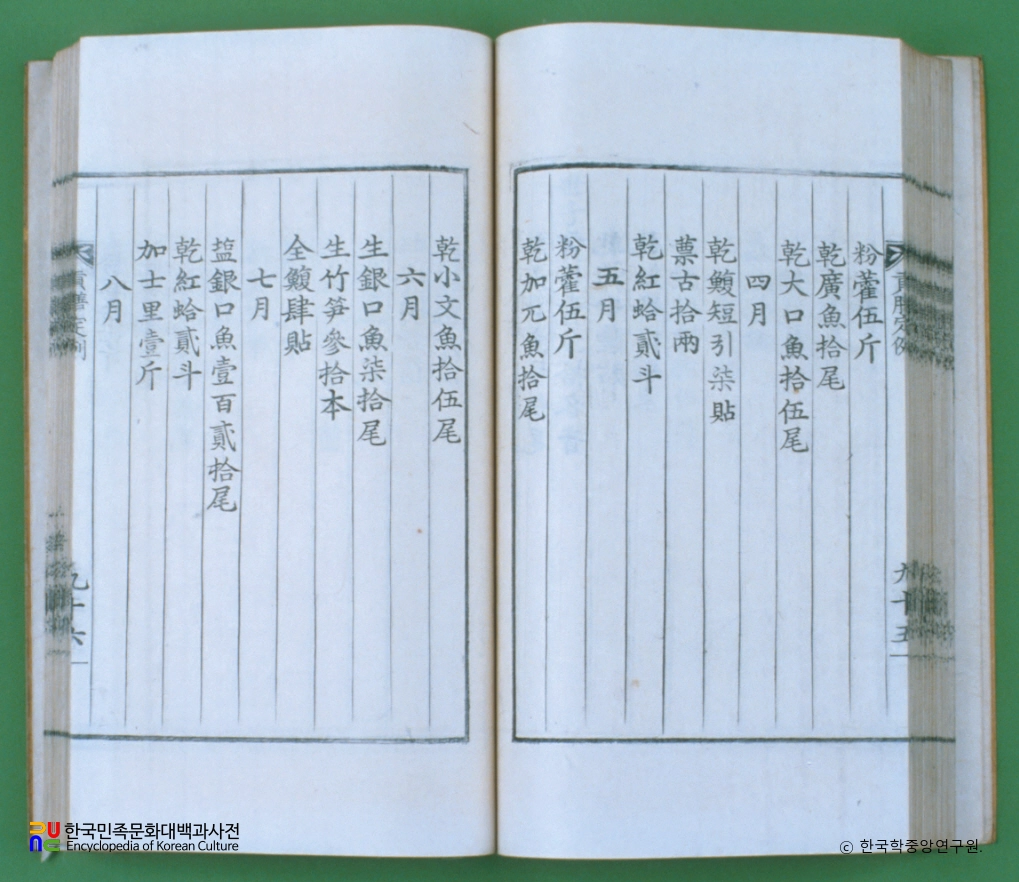 粉藿伍斤
乾廣魚拾尾
乾大口魚拾伍尾
四月
乾鰒短引柒貼
藁古拾兩
乾紅蛤貳斗
五月
粉藿伍斤
乾加兀魚拾尾
九十五
乾小文魚拾伍尾
六月
生銀口魚柒拾尾
生竹笋參拾本
全鰒肆貼
七月
塩銀口魚壹百貳拾尾
乾紅蛤貳斗
加士里壹斤
八月
九十六
한국민족문화대백과사전
Encyclopedia of Korean Culture
ⓒ 한국학중앙연구원.